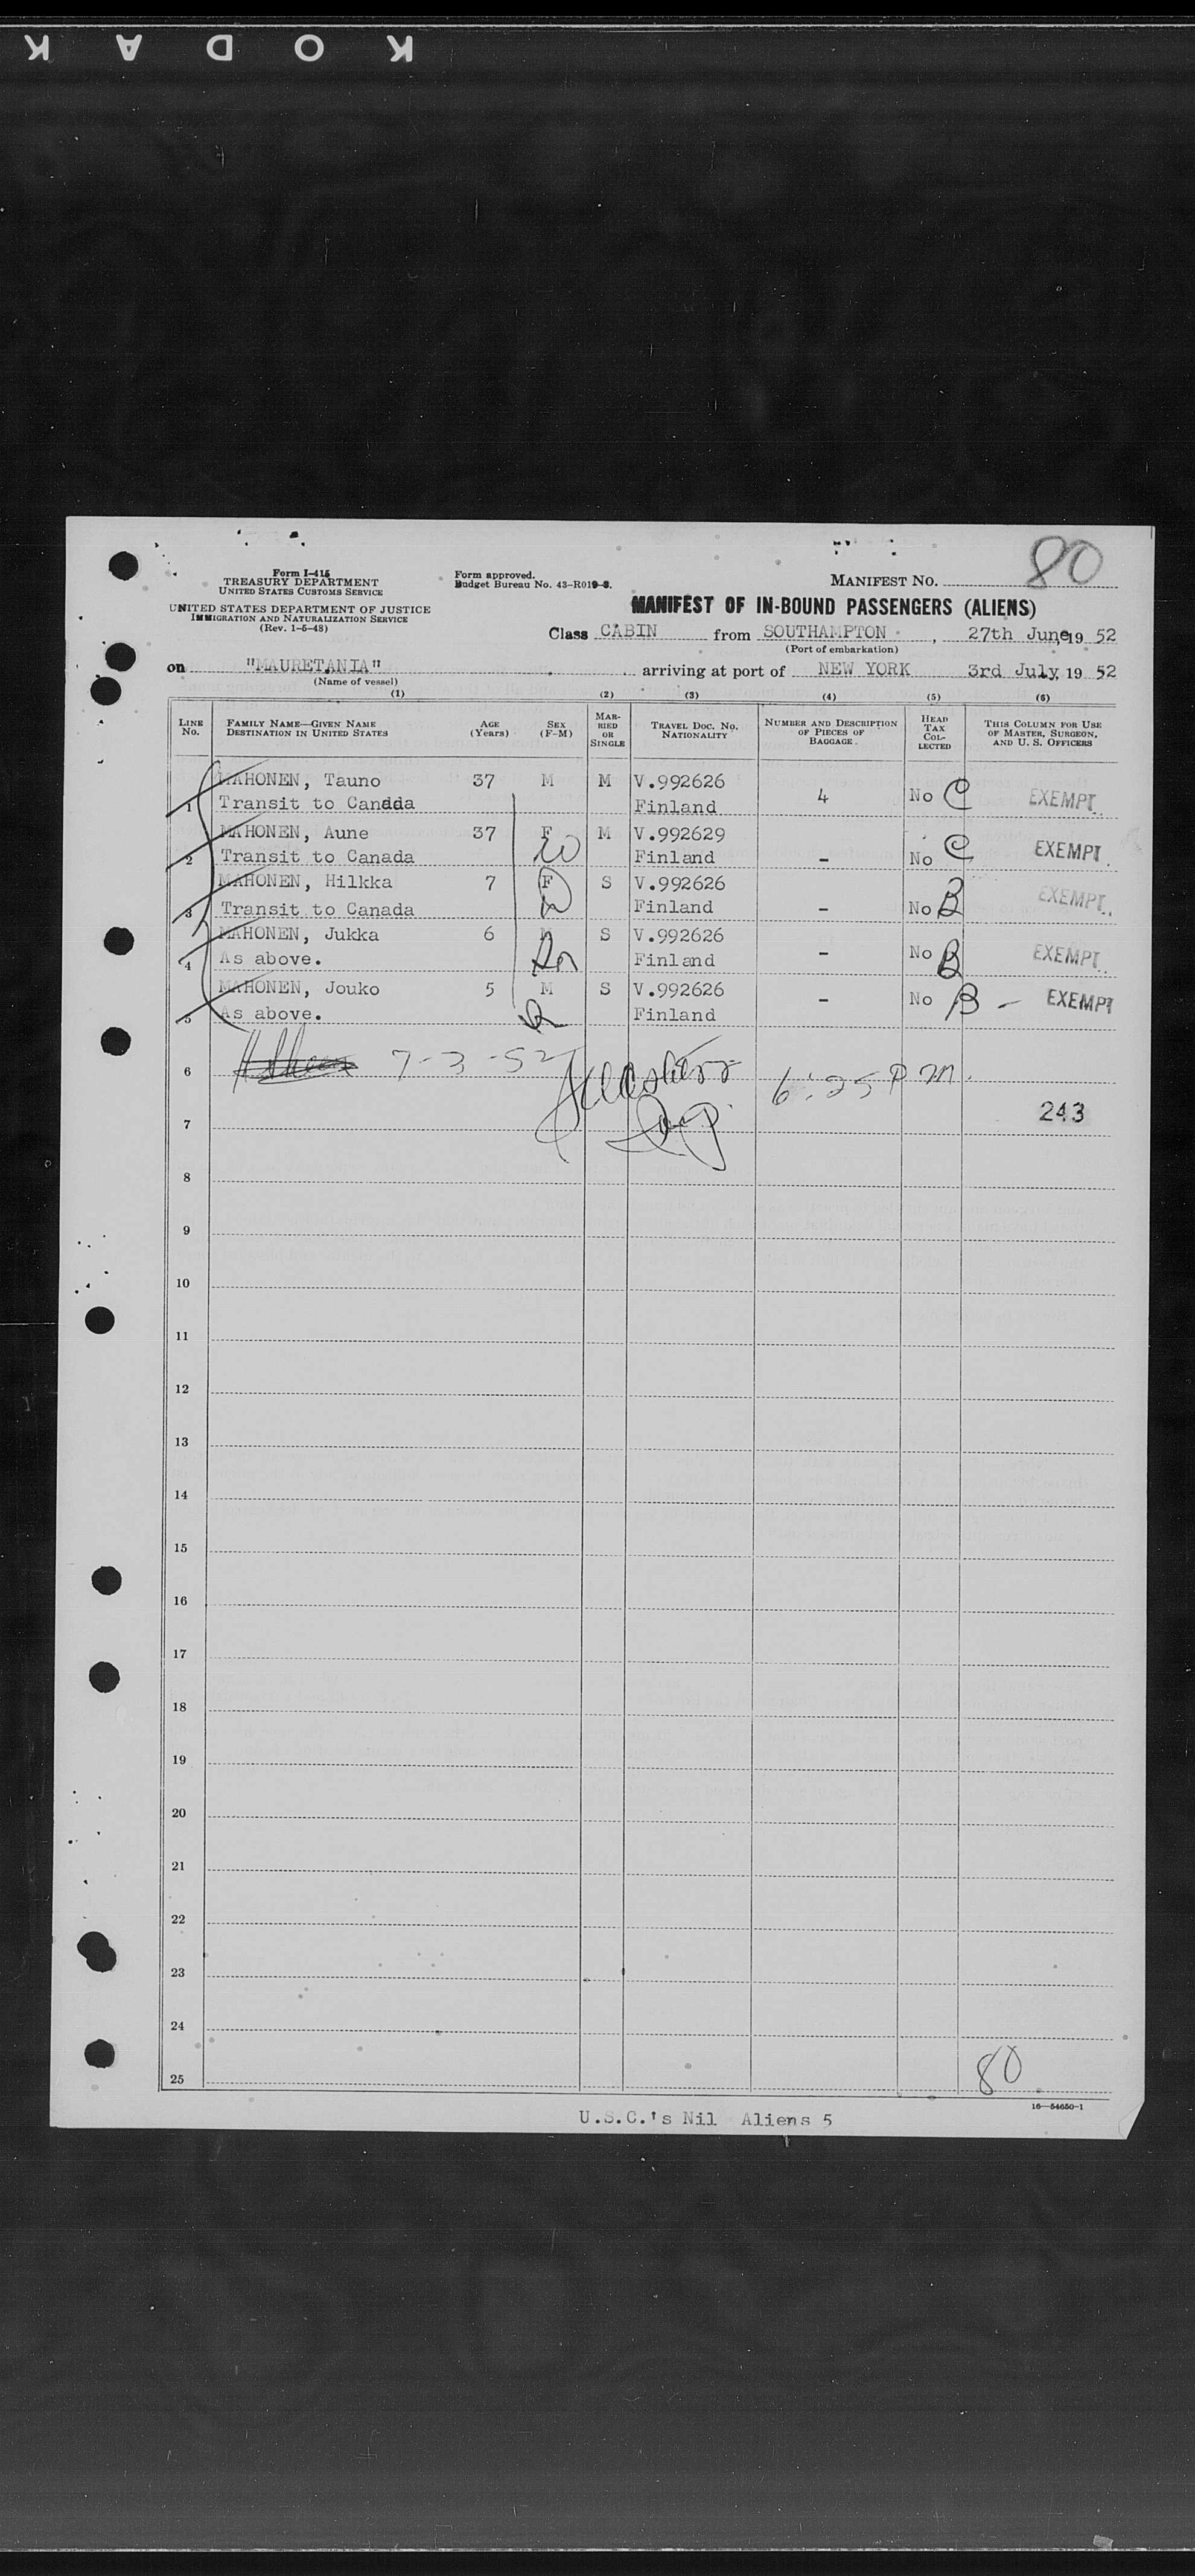 KODAK
Form I-415
TREASURY DEPARTMENT
UNITED STATES CUSTOMS SERVICE
UNITED STATES DEPARTMENT OF JUSTICE
IMMIGRATION AND NATURALIZATION SERVICE
(Rev. 1-5-48)
Form approved.
Budget Bureau No. 43-R019-3.
MANIFEST NO. 80
MANIFEST OF IN-BOUND PASSENGERS (ALIENS)
Class CABIN from SOUTHAMPTON, 27th June, 19 52
(Port of embarkation)
on "MAURETANIA" arriving at port of NEW YORK 3rd July, 19 52
(Name of vessel)
(1) (2) (3) (4) (5) (6)
LINE No. FAMILY NAME—GIVEN NAME DESTINATION IN UNITED STATES AGE (Years) SEX (F-M) MARRIED OR SINGLE TRAVEL DOC. NO. NATIONALITY NUMBER AND DESCRIPTION OF PIECES OF BAGGAGE HEAD TAX COLLECTED THIS COLUMN FOR USE OF MASTER, SURGEON, AND U. S. OFFICERS
MAHONEN, Tauno 37 M M V.992626
1 Transit to Canada Finland 4 No C EXEMPT
MAHONEN, Aune 37 F M V.992629
2 Transit to Canada Finland - No C EXEMPT
MAHONEN, Hilkka 7 F S V.992626
3 Transit to Canada Finland - No B EXEMPT
MAHONEN, Jukka 6 M S V.992626
4 As above. Finland - No B EXEMPT
MAHONEN, Jouko 5 M S V.992626
5 As above. Finland - No B - EXEMPT
6 7-3-52 6:25 P m.
7 243
8
9
10
11
12
13
14
15
16
17
18
19
20
21
22
23
24
25 80
16—54650-1
U.S.C.'s Nil Aliens 5